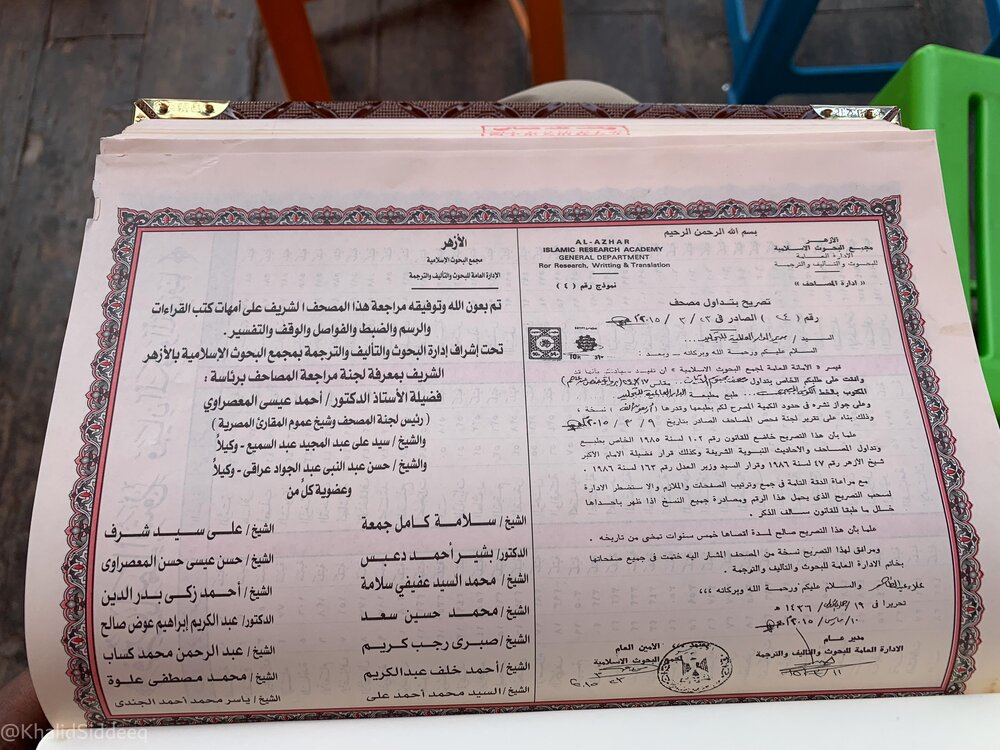 بسم الله الرحمن الرحيم
الأزهر
مجمع البحوث الاسلامية
الادارة العامة
للبحوث والتأليف والترجمة
« ادارة المصاحف »
AL-AZHAR
ISLAMIC RESEARCH ACADEMY
GENERAL DEPARTMENT
For Research, Writting & Translation
نموذج رقم ( ٤ )
تصريح بتداول مصحف
السلام عليكم ورحمة الله وبركاته .. وبعد :
تفيد « الامانة العامة لمجمع البحوث الاسلامية »
وافقت على طلبكم الخاص بتداول مصحف
وعلى جواز نشره فى حدود الكمية المصرح لكم بطبعها وقدرها
وذلك بناء على تقرير لجنة فحص المصاحف الصادر بتاريخ ٩ / ٣ / ٢٠١٥
علما بأن هذا التصريح خاضع للقانون رقم ١٠٢ لسنة ١٩٨٥ الخاص بطبع
وتداول المصاحف والاحاديث النبوية الشريفة وكذلك قرار فضيلة الامام الاكبر
شيخ الأزهر رقم ٤٧ لسنة ١٩٨٦ وقرار السيد وزير العدل رقم ١٦٣ لسنة ١٩٨٦ .
مع مراعاة الدقة التامة فى جمع وترتيب الصفحات والملازم والا ستضطر الادارة
لسحب التصريح الذى يحمل هذا الرقم ومصادرة جميع النسخ اذا ظهر باحداها
خلل ما طبقا للقانون سالف الذكر .
علما بأن هذا التصريح صالح لمدة أقصاها خمس سنوات تمضى من تاريخه .
ومرافق لهذا التصريح نسخة من المصحف المشار اليه ختمت فى جميع صفحاتها
بخاتم الادارة العامة للبحوث والتأليف والترجمة .
والسلام عليكم ورحمة الله وبركاته ،،،
مدير عام
الادارة العامة للبحوث والتأليف والترجمة
الأمين العام
لمجمع البحوث الاسلامية
الأزهر
مجمع البحوث الإسلامية
الإدارة العامة للبحوث والتأليف والترجمة
تم بعون الله وتوفيقه مراجعة هذا المصحف الشريف على أمهات كتب القراءات
والرسم والضبط والفواصل والوقف والتفسير .
تحت إشراف إدارة البحوث والتأليف والترجمة بمجمع البحوث الإسلامية بالأزهر
الشريف بمعرفة لجنة مراجعة المصاحف برئاسة :
فضيلة الأستاذ الدكتور/ أحمد عيسى المعصراوي
( رئيس لجنة المصحف وشيخ عموم المقارئ المصرية )
والشيخ / سيد على عبد المجيد عبد السميع - وكيلاً
والشيخ / حسن عبد النبى عبد الجواد عراقى - وكيلاً
وعضوية كلٌّ من
الشيخ/ سلامة كامل جمعة
الشيخ/ على سيد شرف
الدكتور/ بشير أحمد دعبس
الشيخ/ حسن عيسى حسن المعصراوى
الشيخ/ محمد السيد عفيفي سلامة
الشيخ/ أحمد زكى بدر الدين
الشيخ/ محمد حسين سعد
الدكتور/ عبد الكريم إبراهيم عوض صالح
الشيخ/ صبرى رجب كريم
الشيخ/ عبد الرحمن محمد كساب
الشيخ/ أحمد خلف عبدالكريم
الشيخ/ محمد مصطفى علوة
الشيخ/ السيد محمد أحمد على
الشيخ/ ياسر محمد أحمد الجندى
@KhalidSiddeeq